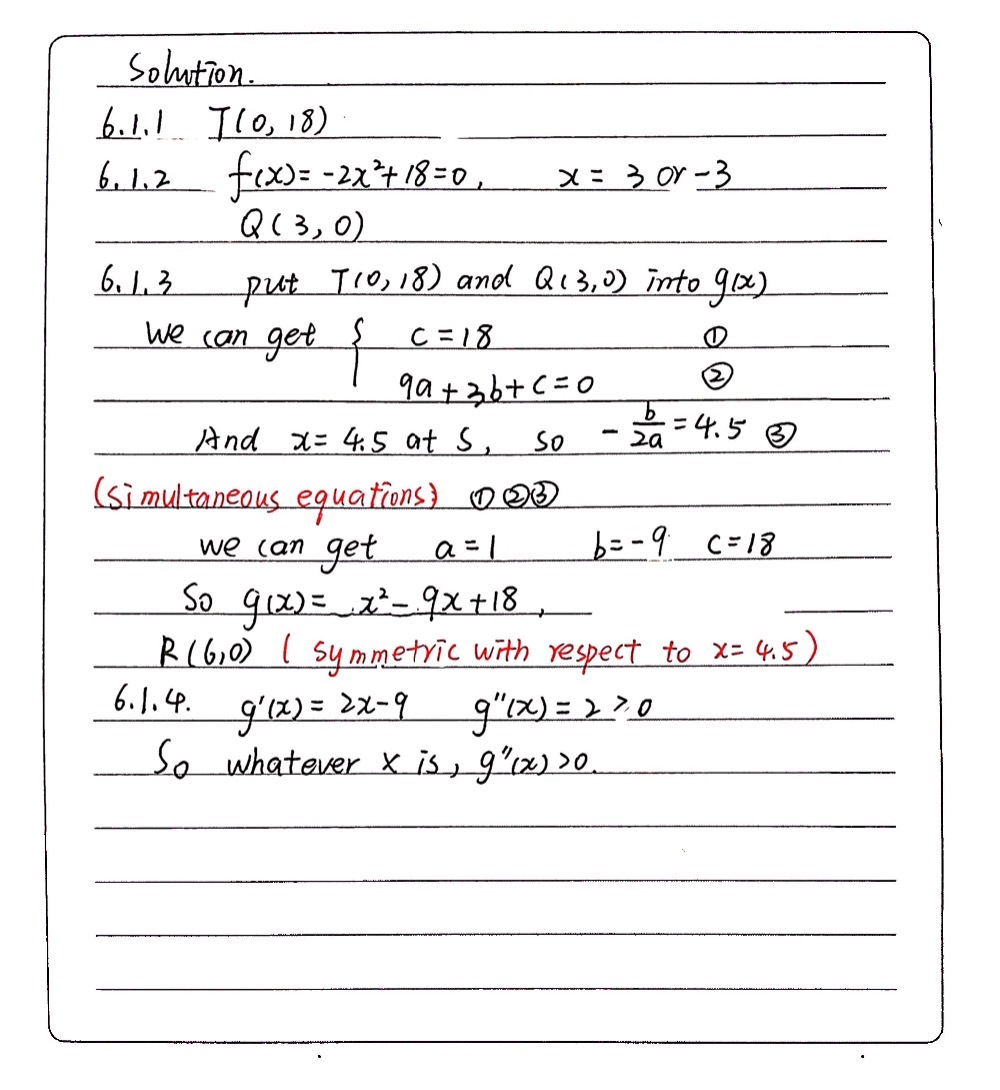 Solution.
6.1.1 T(0, 18)
6.1.2 f(x) = -2x²+18=0, x = 3 or -3
Q(3, 0)
6.1.3 put T(0, 18) and Q(3,0) into g(x)
We can get { c = 18 ①
9a+3b+c=0 ②
And x= 4.5 at S, so -b/2a = 4.5 ③
(simultaneous equations) ①②③
we can get a=1 b=-9 c=18
So g(x) = x²-9x+18,
R(6,0) ( symmetric with respect to x= 4.5)
6.1.4. g'(x) = 2x-9 g''(x) = 2 > 0
So whatever x is, g''(x) >0.